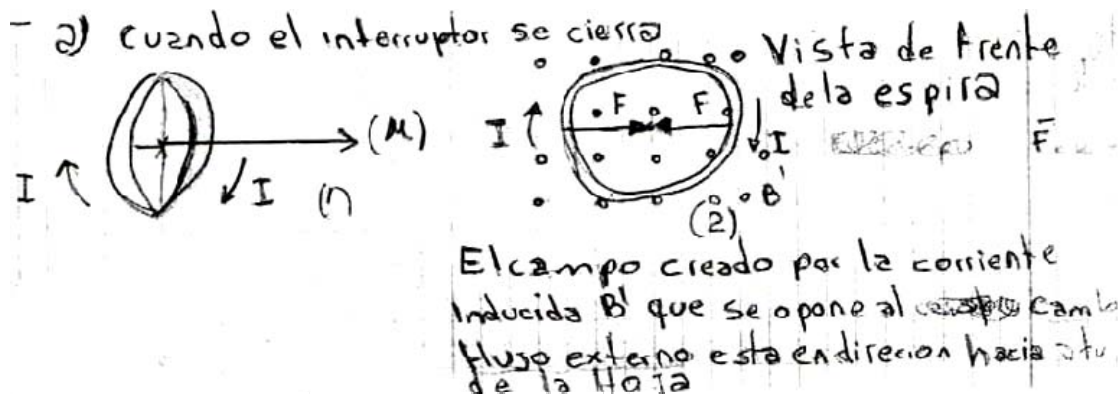 a) cuando el interruptor se cierra
Vista de frente
de la espira
I
I
(μ)
(1)
I
F
F
I
F
B'
(2)
El campo creado por la corriente
Inducida B' que se opone al
flujo externo esta en direcion hacia
de la Hoja